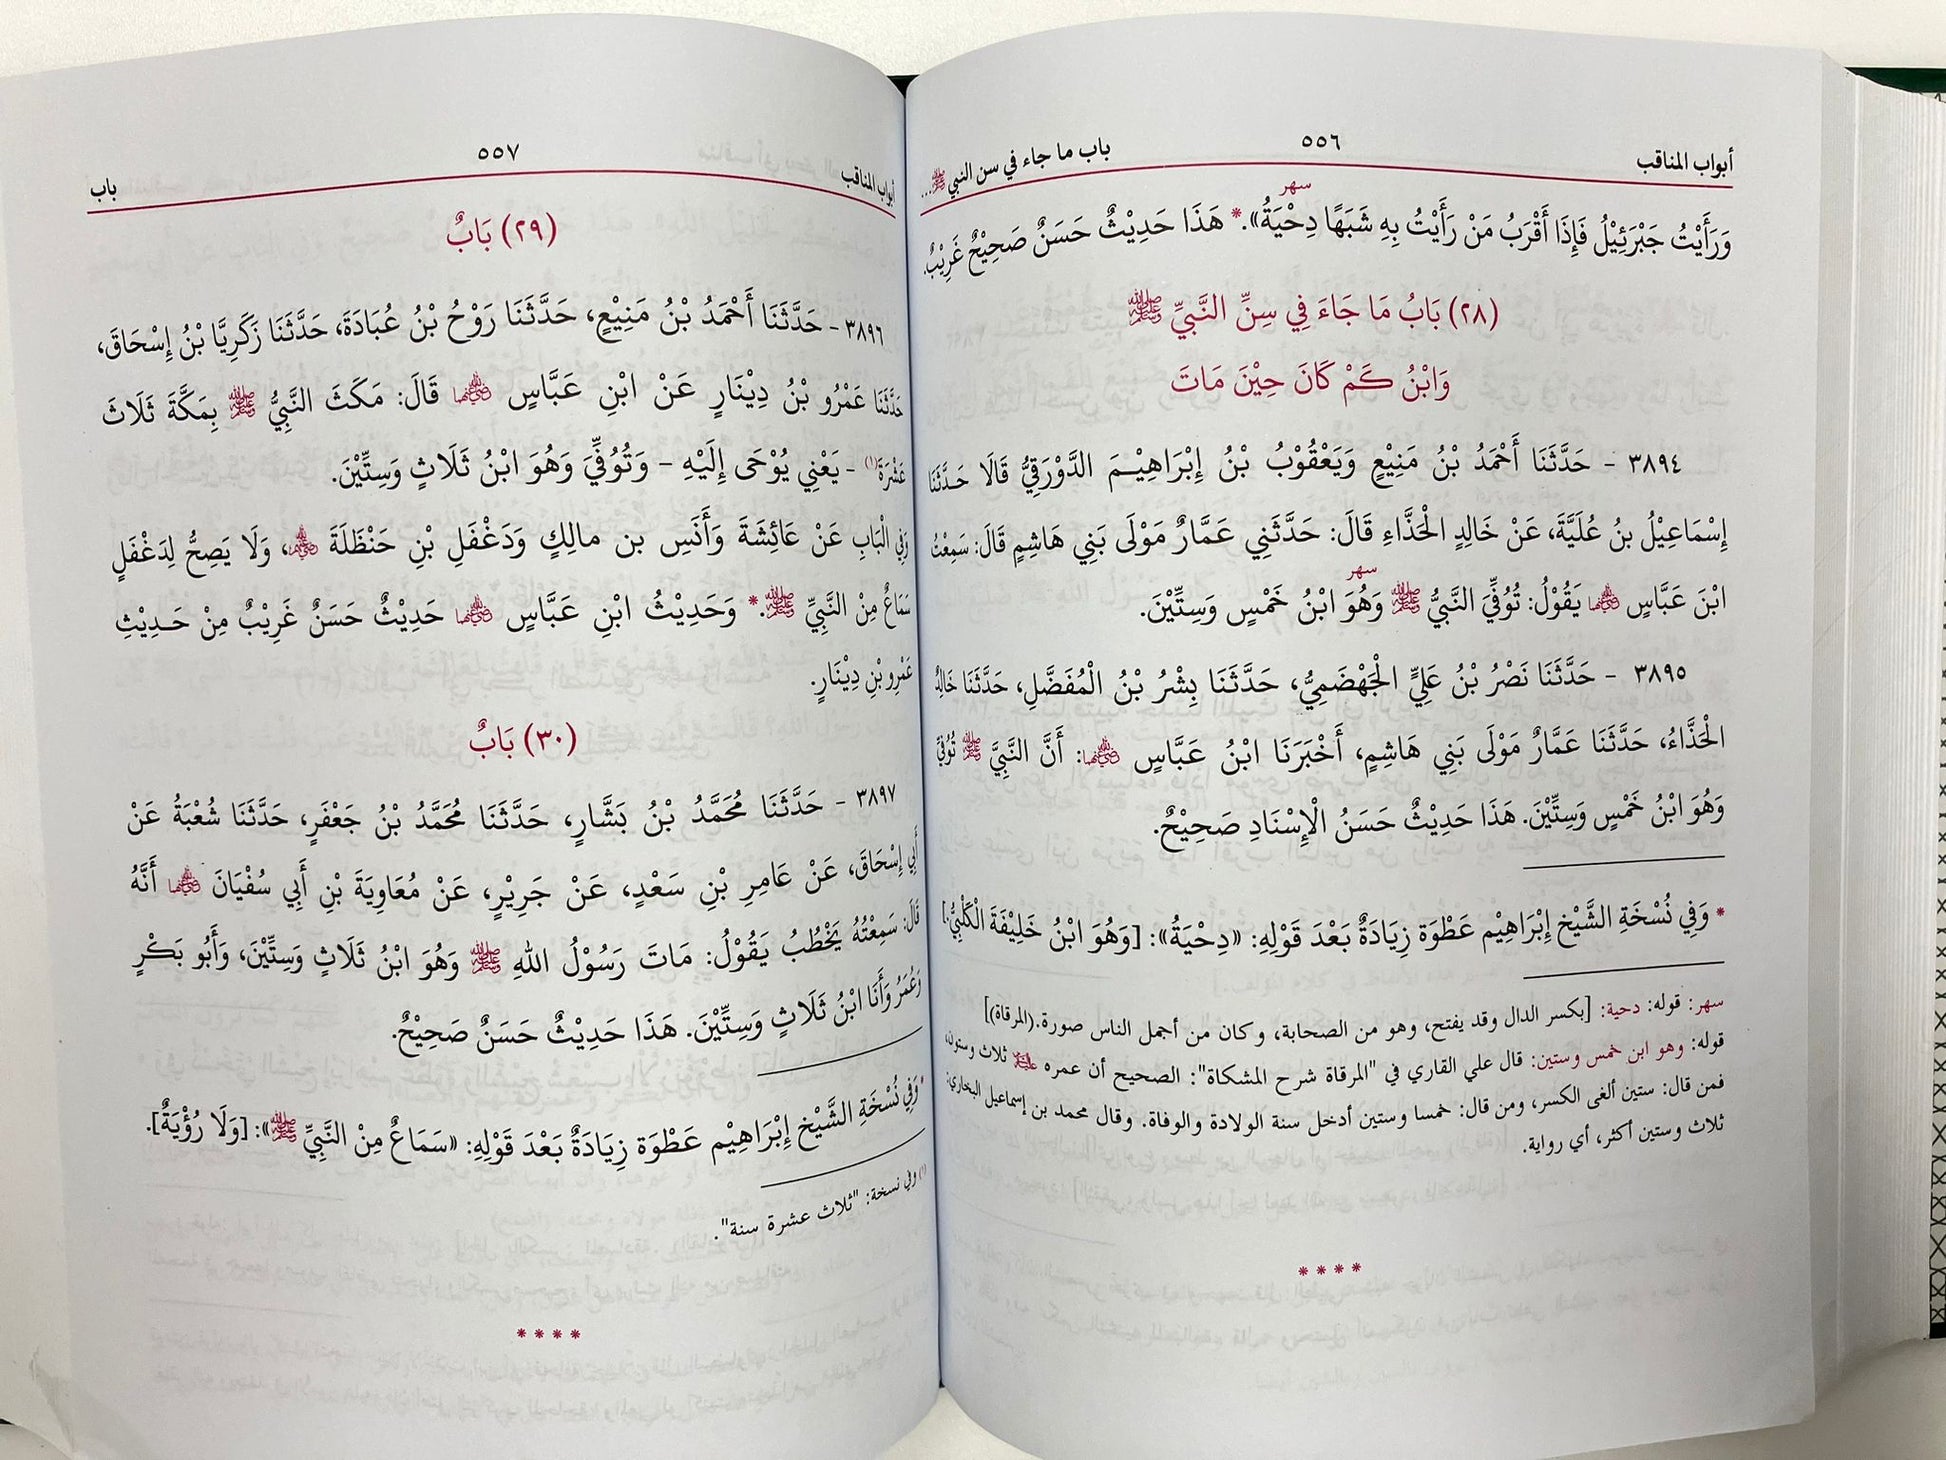 أبواب المناقب ٥٥٦ باب ما جاء في سن النبي ﷺ...
سهر
وَرَأَيْتُ جَبْرَئِيْلُ فَإِذَا أَقْرَبُ مَنْ رَأَيْتُ بِهِ شَبَهًا دِحْيَةُ». * هَذَا حَدِيْثٌ حَسَنٌ صَحِيْحٌ غَرِيْبٌ.
(٢٨) بَابُ مَا جَاءَ فِي سِنِّ النَّبِيِّ ﷺ
وَابْنُ كَمْ كَانَ حِيْنَ مَاتَ
٣٨٩٤ - حَدَّثَنَا أَحْمَدُ بْنُ مَنِيْعٍ وَيَعْقُوْبُ بْنُ إِبْرَاهِيْمَ الدَّوْرَقِيُّ قَالَا حَدَّثَنَا
إِسْمَاعِيْلُ بنُ عُلَيَّةَ، عَنْ خَالِدٍ الْحَذَّاءِ قَالَ: حَدَّثَنِي عَمَّارٌ مَوْلَى بَنِي هَاشِمٍ قَالَ: سَمِعْتُ
سهر
ابْنَ عَبَّاسٍ رضي الله عنهما يَقُوْلُ: تُوُفِّيَ النَّبِيُّ ﷺ وَهُوَ ابْنُ خَمْسٍ وَسِتِّيْنَ.
٣٨٩٥ - حَدَّثَنَا نَصْرُ بْنُ عَلِيٍّ الْجَهْضَمِيُّ، حَدَّثَنَا بِشْرُ بْنُ الْمُفَضَّلِ، حَدَّثَنَا خَالِدٌ
الْحَذَّاءُ، حَدَّثَنَا عَمَّارٌ مَوْلَى بَنِي هَاشِمٍ، أَخْبَرَنَا ابْنُ عَبَّاسٍ رضي الله عنهما: أَنَّ النَّبِيَّ ﷺ تُوُفِّيَ
وَهُوَ ابْنُ خَمْسٍ وَسِتِّيْنَ. هَذَا حَدِيْثٌ حَسَنُ الْإِسْنَادِ صَحِيْحٌ.
* وَفِي نُسْخَةِ الشَّيْخِ إِبْرَاهِيْم عَطْوَة زِيَادَةٌ بَعْدَ قَوْلِهِ: «دِحْيَةُ»: [وَهُوَ ابْنُ خَلِيْفَةَ الْكَلْبِيُّ.]
سهر: قوله: دحية: [بكسر الدال وقد يفتح، وهو من الصحابة، وكان من أجمل الناس صورة.(المرقاة)]
قوله: وهو ابن خمس وستين: قال علي القاري في "المرقاة شرح المشكاة": الصحيح أن عمره عليه السلام ثلاث وستون،
فمن قال: ستين ألغى الكسر، ومن قال: خمسا وستين أدخل سنة الولادة والوفاة. وقال محمد بن إسماعيل البخاري:
ثلاث وستين أكثر، أي رواية.
****
أبواب المناقب ٥٥٧ باب
(٢٩) بَابٌ
٣٨٩٦ - حَدَّثَنَا أَحْمَدُ بْنُ مَنِيْعٍ، حَدَّثَنَا رَوْحُ بْنُ عُبَادَةَ، حَدَّثَنَا زَكَرِيَّا بْنُ إِسْحَاقَ،
حَدَّثَنَا عَمْرُو بْنُ دِيْنَارٍ عَنْ ابْنِ عَبَّاسٍ رضي الله عنهما قَالَ: مَكَثَ النَّبِيُّ ﷺ بِمَكَّةَ ثَلَاثَ
عَشْرَةَ(١) - يَعْنِي يُوْحَى إِلَيْهِ - وَتُوُفِّيَ وَهُوَ ابْنُ ثَلَاثٍ وَسِتِّيْنَ.
وَفِي الْبَابِ عَنْ عَائِشَةَ وَأَنَسِ بن مالِكٍ وَدَغْفَلِ بْنِ حَنْظَلَةَ رضي الله عنهم، وَلَا يَصِحُّ لِدَغْفَلٍ
سَمَاعٌ مِنْ النَّبِيِّ ﷺ. * وَحَدِيْثُ ابْنِ عَبَّاسٍ رضي الله عنهما حَدِيْثٌ حَسَنٌ غَرِيْبٌ مِنْ حَدِيْثِ
عَمْرِو بْنِ دِيْنَارٍ.
(٣٠) بَابٌ
٣٨٩٧ - حَدَّثَنَا مُحَمَّدُ بْنُ بَشَّارٍ، حَدَّثَنَا مُحَمَّدُ بْنُ جَعْفَرٍ، حَدَّثَنَا شُعْبَةُ عَنْ
أَبِي إِسْحَاقَ، عَنْ عَامِرِ بْنِ سَعْدٍ، عَنْ جَرِيْرٍ، عَنْ مُعَاوِيَةَ بْنِ أَبِي سُفْيَانَ رضي الله عنهما أَنَّهُ
قَالَ: سَمِعْتُهُ يَخْطُبُ يَقُوْلُ: مَاتَ رَسُوْلُ اللهِ ﷺ وَهُوَ ابْنُ ثَلَاثٍ وَسِتِّيْنَ، وَأَبُو بَكْرٍ
وَعُمَرُ وَأَنَا ابْنُ ثَلَاثٍ وَسِتِّيْنَ. هَذَا حَدِيْثٌ حَسَنٌ صَحِيْحٌ.
* وَفِي نُسْخَةِ الشَّيْخِ إِبْرَاهِيْم عَطْوَة زِيَادَةٌ بَعْدَ قَوْلِهِ: «سَمَاعٌ مِنْ النَّبِيِّ ﷺ»: [وَلَا رُؤْيَةٌ].
(١) وفي نسخة: "ثلاث عشرة سنة".
****